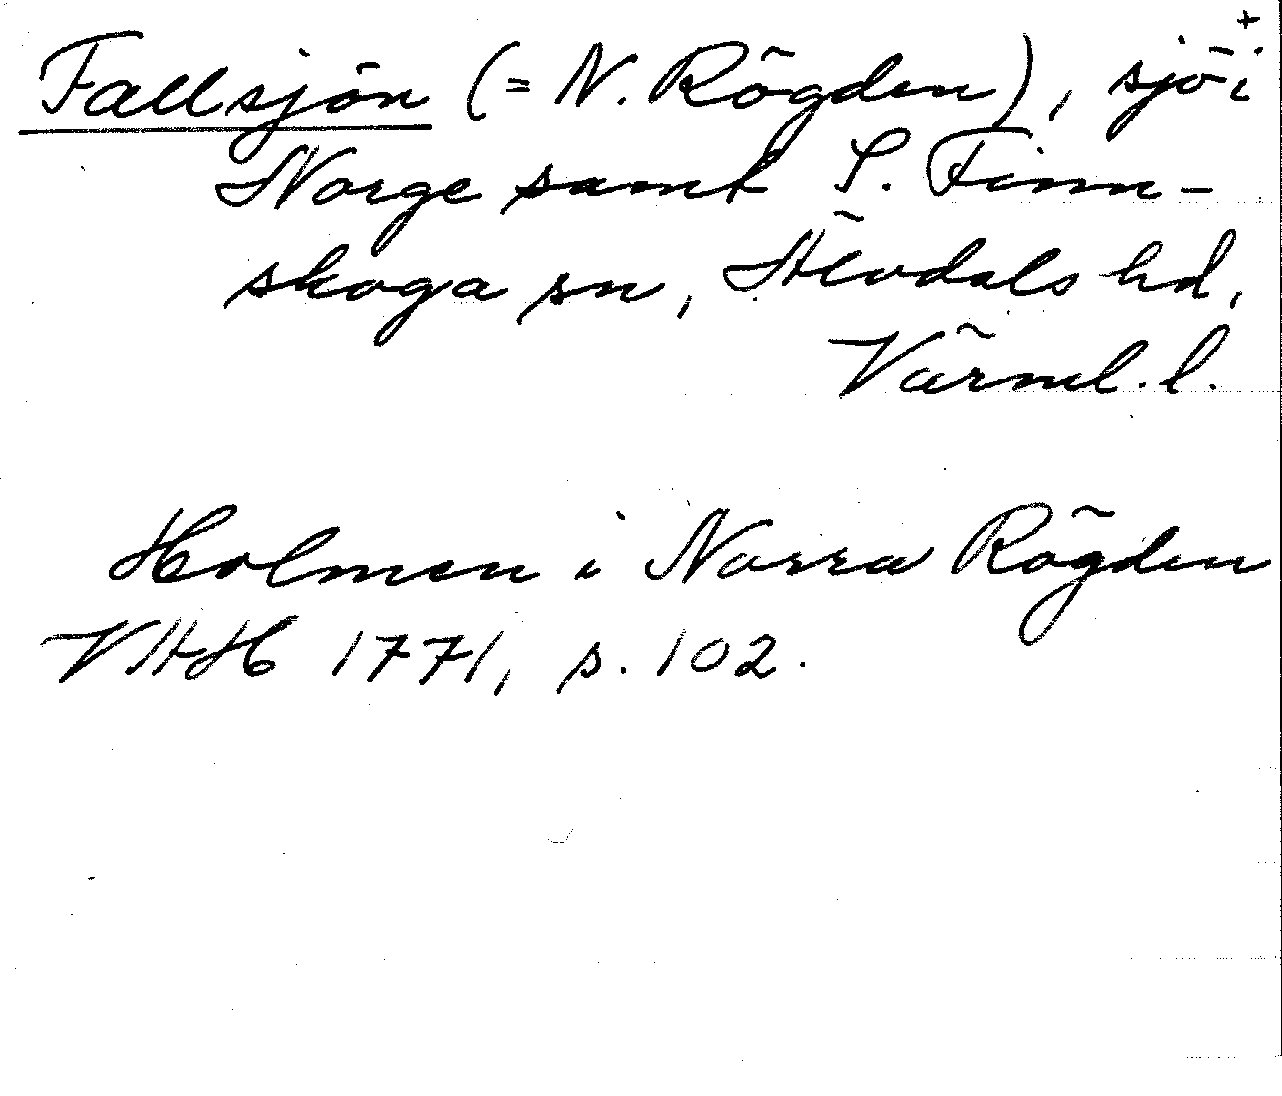 +
Fallsjön (= N. Rögden), sjö i
Norge samt S. Finn-
skoga sn, Älvdals hd,
Värml. l.
Holmen i Norra Rögden
VHH 1771, s. 102.